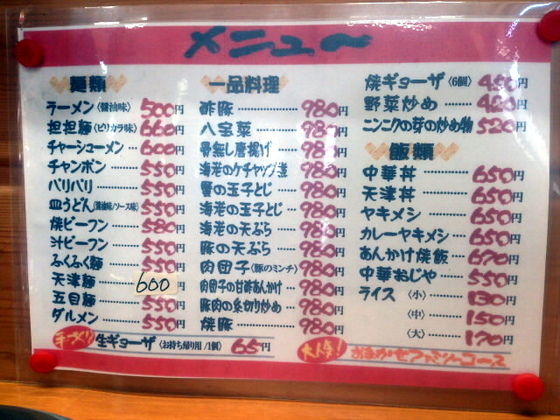 メニュ〜
麺類
ラーメン〈醤油味〉 500円
担担麺〈ピリカラ味〉 660円
チャーシューメン … 600円
チャンポン 550円
バリバリ 550円
皿うどん〈醤油味/ソース味〉 550円
焼ビーフン 580円
汁ビーフン 550円
ふくふく麺 550円
天津麺 600
五目麺 550円
ダルメン 550円
手づくり 生ギョーザ〈お持ち帰り用/1個〉 65円
一品料理
酢豚 980円
八宝菜 980円
骨無し唐揚げ 980円
海老のケチャップ煮 980円
蟹の玉子とじ 980円
海老の玉子とじ … 980円
海老の天ぷら 980円
豚の天ぷら 980円
肉団子〈豚のミンチ〉 980円
肉団子の甘酢あんかけ … 980円
豚肉の糸切り炒め … 980円
焼豚 980円
焼ギョーザ〈6個〉 450円
野菜炒め 420円
ニンニクの芽の炒め物 520円
飯類
中華丼 650円
天津丼 650円
ヤキメシ 650円
カレーヤキメシ 650円
あんかけ焼飯 670円
中華おじや 550円
ライス 〈小〉 130円
〈中〉 150円
〈大〉 170円
大人気! おまかせファミリーコース